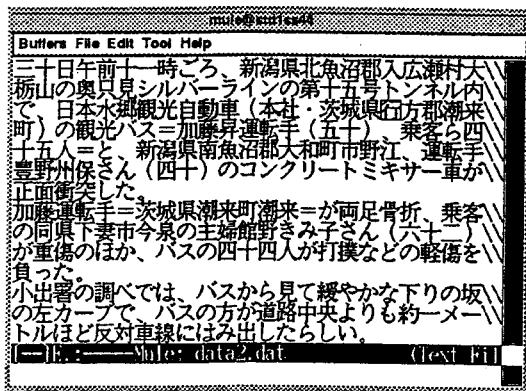 mule@sun1ss44
Buffers File Edit Tool Help
三十日午前十一時ごろ、新潟県北魚沼郡入広瀬村大\\
栃山の奥只見シルバーラインの第十五号トンネル内\\
で、日本水郷観光自動車（本社・茨城県行方郡潮来\\
町）の観光バス＝加藤昇運転手（五十）、乗客ら四\\
十五人＝と、新潟県南魚沼郡大和町市野江、運転手\\
豊野州保さん（四十）のコンクリートミキサー車が\\
正面衝突した。
加藤運転手＝茨城県潮来町潮来＝が両足骨折、乗客\\
の同県下妻市今泉の主婦館野きみ子さん（六十二）\\
が重傷のほか、バスの四十四人が打撲などの軽傷を\\
負った。
小出署の調べでは、バスから見て緩やかな下りの坂\\
の左カーブで、バスの方が道路中央よりも約一メー\\
トルほど反対車線にはみ出したらしい。
[--]E.:-----Mule: data2.dat (Text Fil